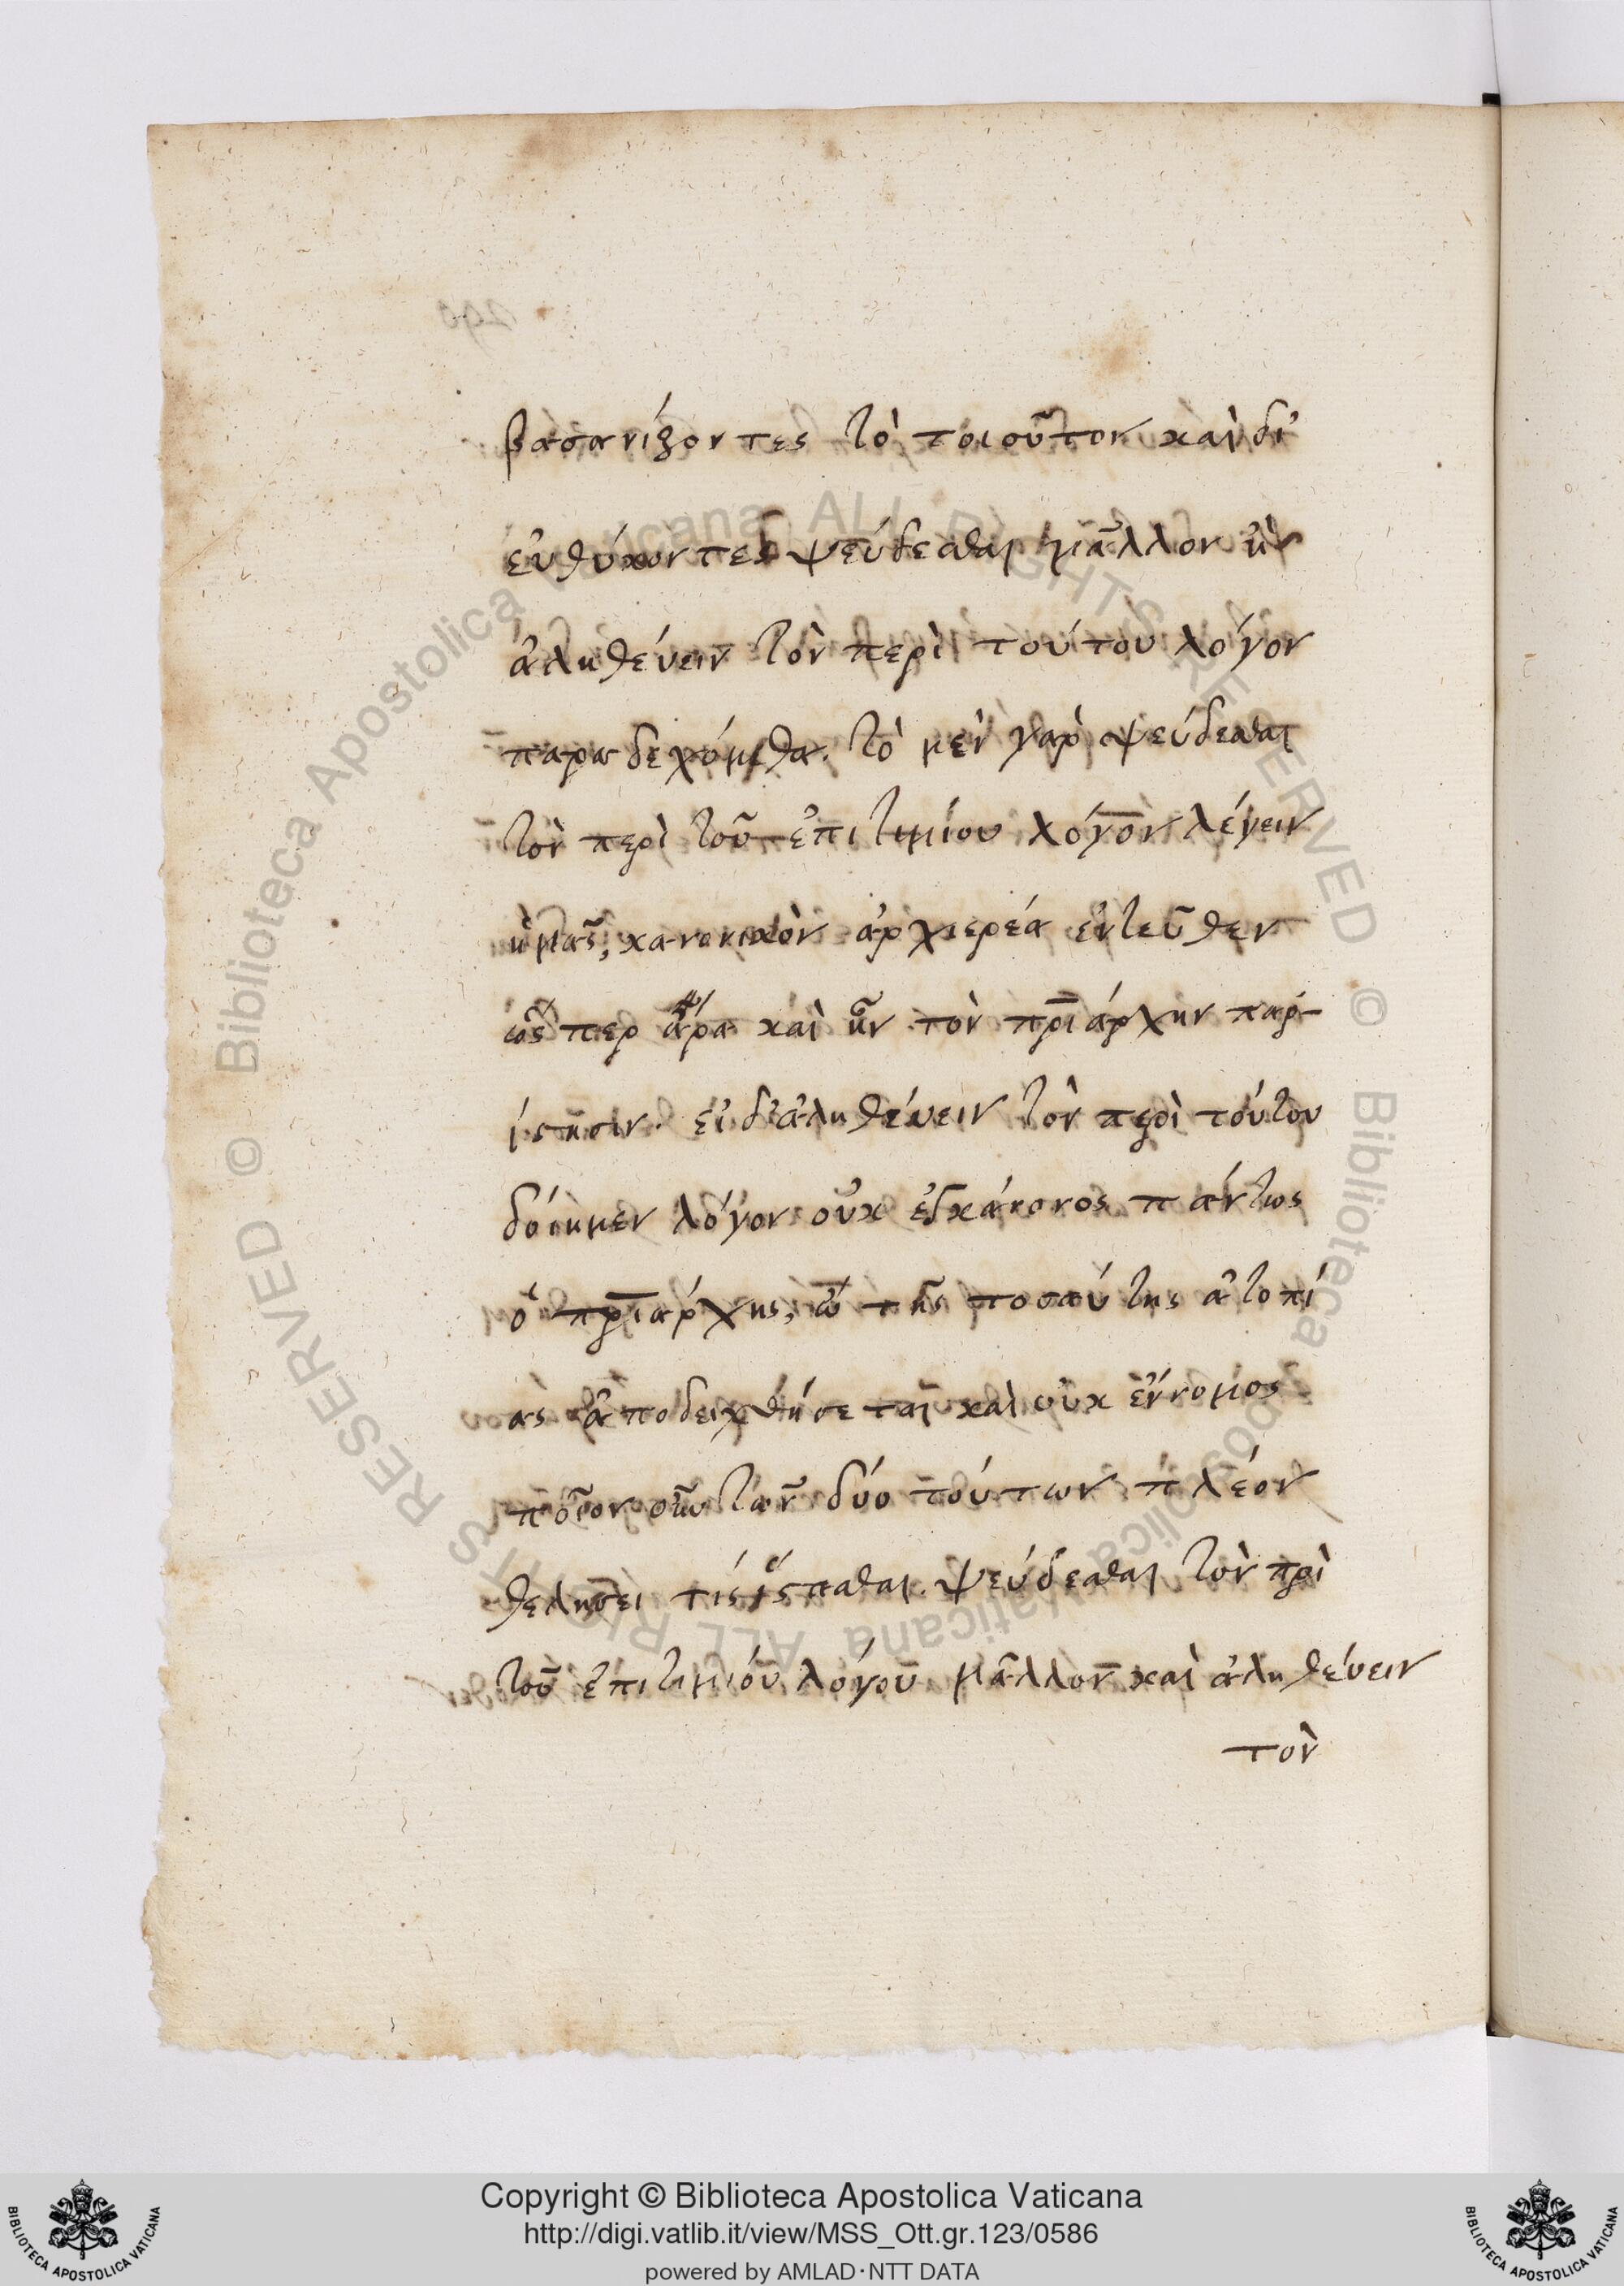 βασανίζοντες τὸ τοιοῦτον καὶ δι
εὐθύνοντες ψεύδεσθαι μᾶλλον ἢ
ἀληθεύειν τὸν περὶ τούτου λόγον
παραδεχόμεθα. τὸ μὲν γὰρ ψεύδεσθαι
τὸν περὶ τοῦ ἐπιτιμίου λόγον λέγειν
ἡμᾶς, κανονικὸν ἀρχιερέα ἐντεῦθεν
ὥσπερ ἄρα καὶ ἦν τὸν πριάρχην παρ-
ίστησιν. εἰ δ' ἀληθεύειν τὸν περὶ τούτου
δοίημεν λόγον οὐκ ἐκκάνονος πάντως
ὁ πριάρχης, ὢ τῆς τοσαύτης ἀτοπί
ας ἀποδειχθήσεται καὶ οὐκ ἔννομος
πότερον οὖν τῶν δύο τούτων πλέον
θελήσει τίς ἕπεσθαι. ψεύδεσθαι τὸν περὶ
τοῦ ἐπιτιμίου λόγου μᾶλλον καὶ ἀληθεύειν
τὸν
Copyright © Biblioteca Apostolica Vaticana
http://digi.vatlib.it/view/MSS_Ott.gr.123/0586
powered by AMLAD·NTT DATA